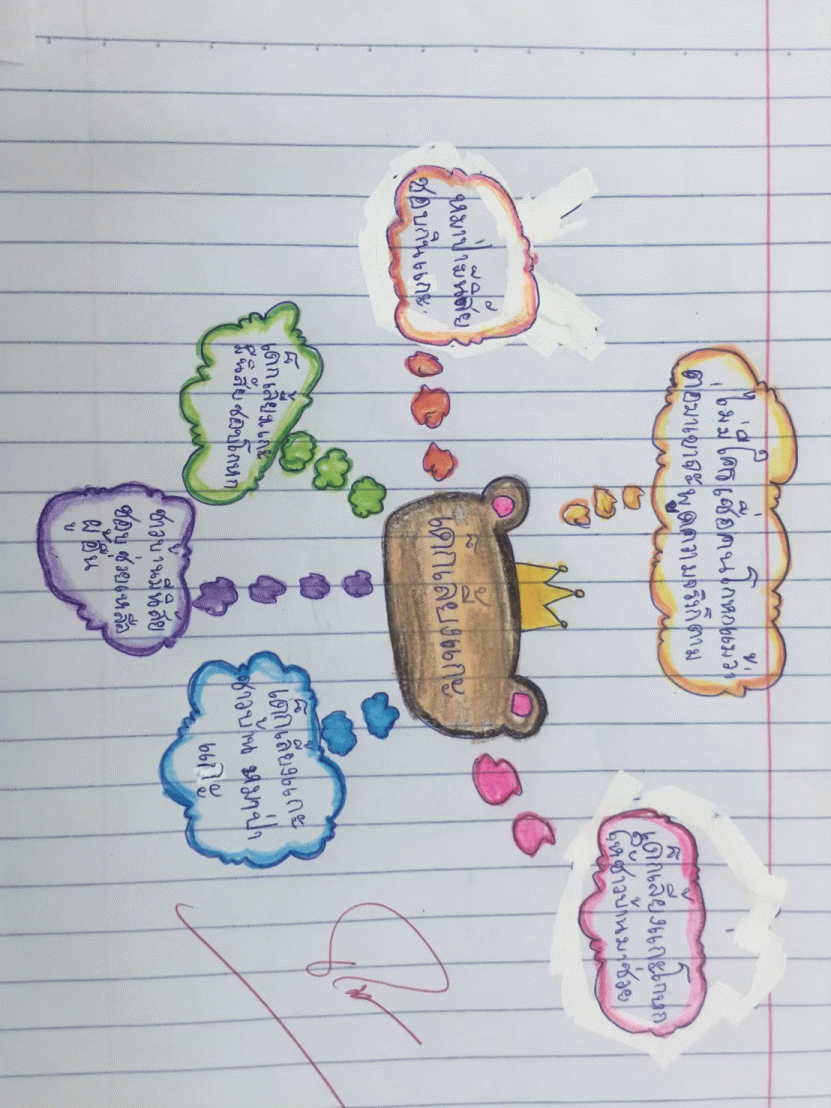 ไม่มีใครเชื่อคนโกหกแม้ว่า
ต่อมาเขาจะพูดความจริงก็ตาม
เด็กเลี้ยงแกะโกหก
ให้ชาวบ้านมาช่วย
หมาป่ามีนิสัย
ชอบกินแกะ
เด็กเลี้ยงแกะ
เด็กเลี้ยงแกะ
มีนิสัยชอบโกหก
ชาวบ้านมีนิสัย
ชอบช่วยเหลือ
ผู้อื่น
เด็กเลี้ยงแกะ
ชาวบ้าน หมาป่า
แกะ